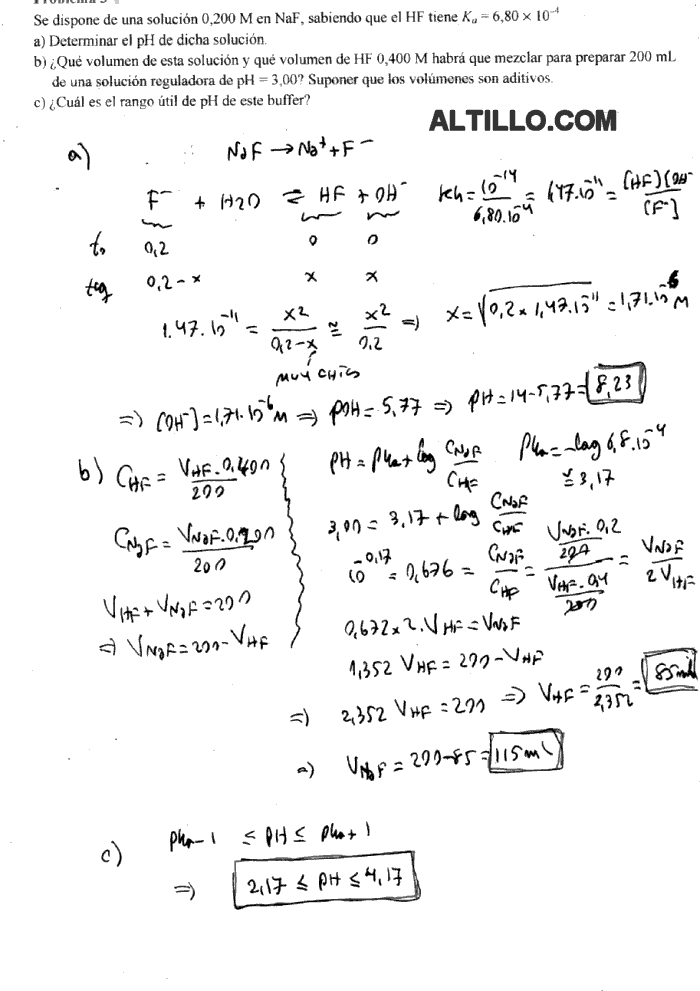 Se dispone de una solución 0,200 M en NaF, sabiendo que el HF tiene Ka = 6,80 × 10⁻⁴
a) Determinar el pH de dicha solución.
b) ¿Qué volumen de esta solución y qué volumen de HF 0,400 M habrá que mezclar para preparar 200 mL
de una solución reguladora de pH = 3,00? Suponer que los volúmenes son aditivos.
c) ¿Cuál es el rango útil de pH de este buffer?
ALTILLO.COM
a) NaF → Na⁺ + F⁻
F⁻ + H2O ⇌ HF + OH⁻ Kh = 10⁻¹⁴ / 6,80.10⁻⁴ = 1,47.10⁻¹¹ = [HF][OH⁻ / [F⁻]
to 0,2 0 0
teq 0,2-x x x
1.47.10⁻¹¹ = x² / 0,2-x ≅ x² / 0,2 ⇒ x = √0,2 x 1,47.10⁻¹¹ = 1,71.10⁻⁶ M
MUY CHICO
⇒ [OH⁻] = 1,71.10⁻⁶ M ⇒ pOH = 5,77 ⇒ pH = 14-5,77 = 8,23
b) CHF = VHF . 0,400 / 200
CNaF = VNaF . 0,200 / 200
VHF + VNaF = 200
⇒ VNaF = 200 - VHF
pH = pKa + log CNaF / CHF pKa = -log 6,8.10⁻⁴
≅ 3,17
3,00 = 3,17 + log CNaF / CHF
10⁻⁰·¹⁷ = 0,676 = CNaF / CHF = VNaF . 0,2 / 200 / VHF . 0,4 / 200 = VNaF / 2 VHF
0,672 x 2. VHF = VNaF
1,352 VHF = 200 - VHF
⇒ 2,352 VHF = 200 ⇒ VHF = 200 / 2,352 = 85ml
⇒ VNaF = 200-85 = 115ml
c) pKa-1 ≤ pH ≤ pKa+1
⇒ 2,17 ≤ pH ≤ 4,17